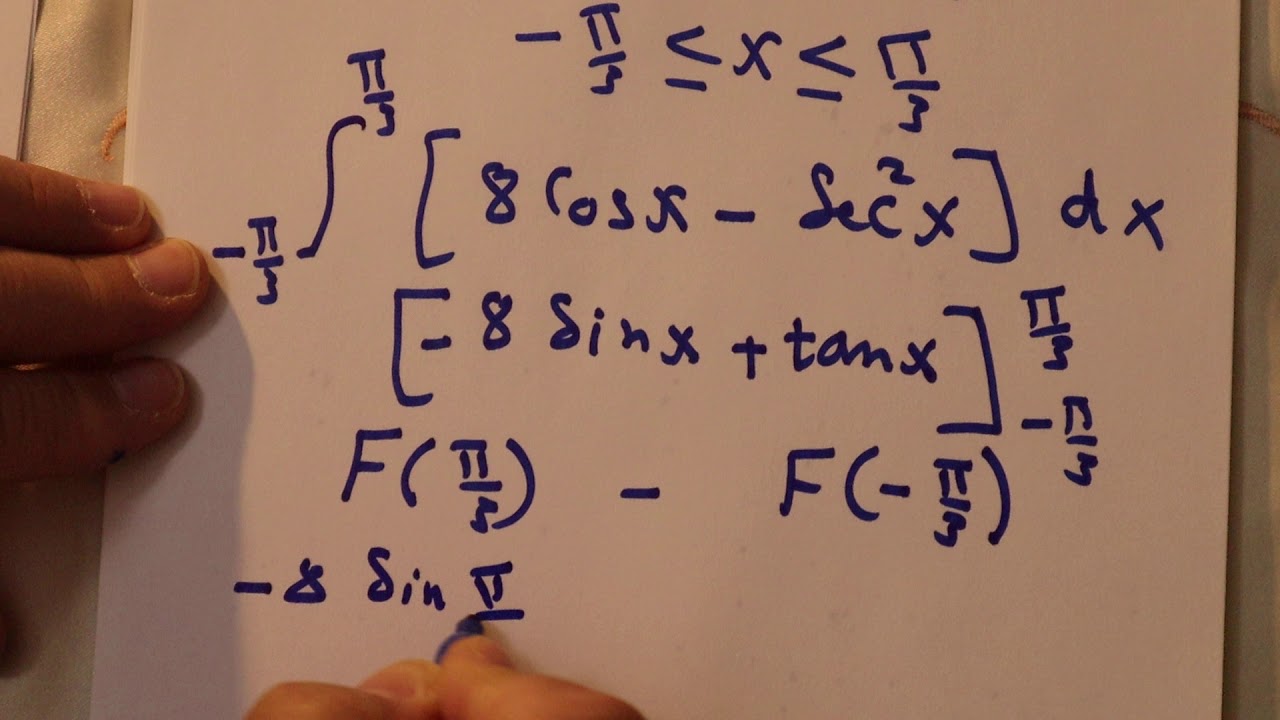 -π/3 ≤ x ≤ π/3
∫_{-π/3}^{π/3} [8 Cosx - Sec²x] dx
[-8 Sinx + tanx]_{-π/3}^{π/3}
F(π/3) - F(-π/3)
-8 Sin π